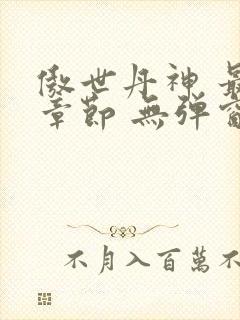 傲世丹神 最
章節 無彈窗
不月入百萬不